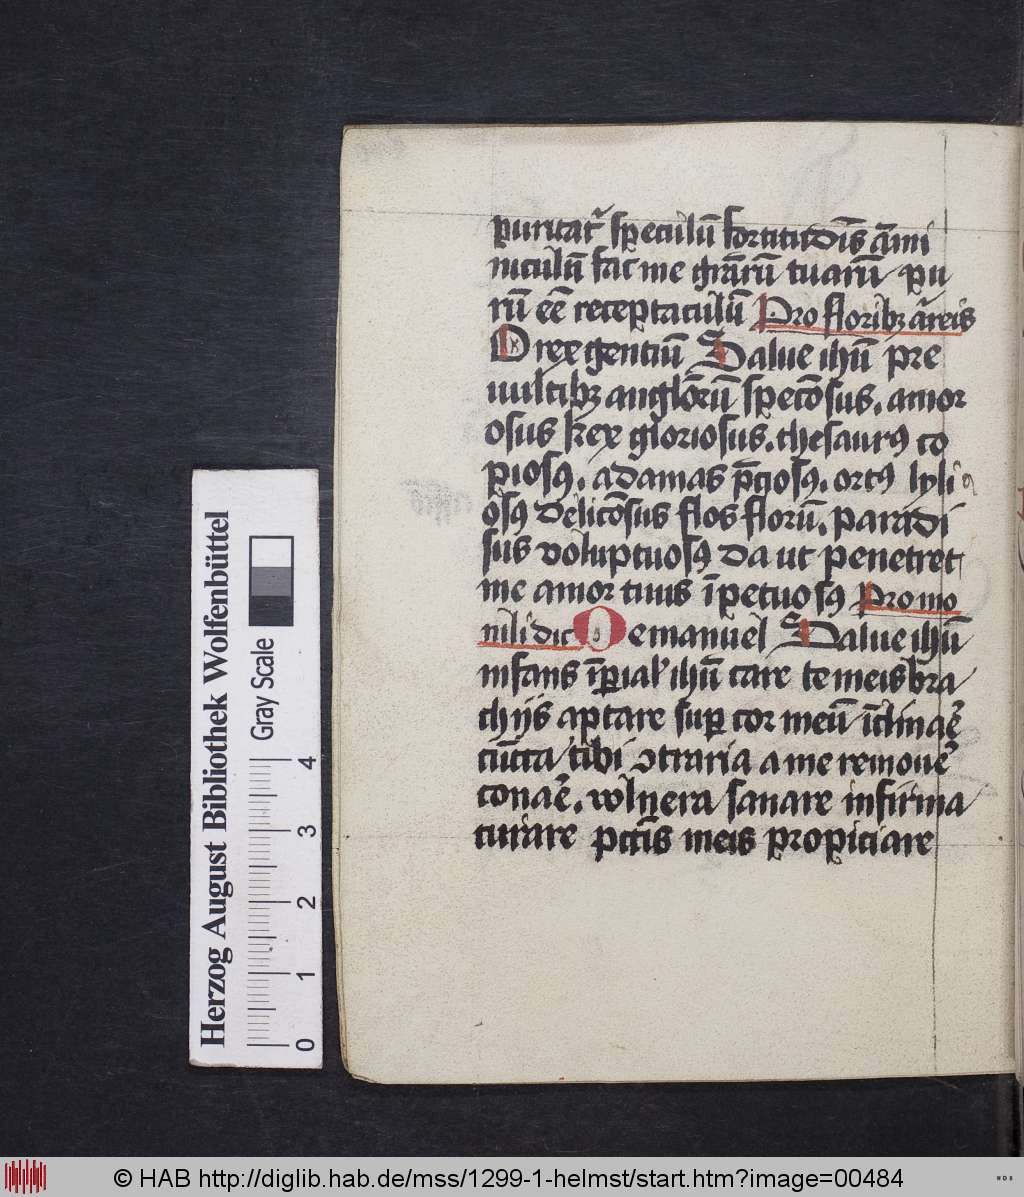 puritat᷒ speculū fortitudīs āmi
niculū fac me grārū tuarū pu
rū eē receptaculū Pro floribꝫ āreis
O rex gentiū Salue ihū pre
vultibꝫ anglorū speciōsus, amor
osus rex gloriosus, thesaurꝯ co
piosꝯ, adamas p̄ciosꝯ, ortꝯ lyli
osꝯ deliciōsus flos florū, paradi
sus voluptuosꝯ da ut penetret
me amor tuus īpetuosꝯ Pro mo
nili dic O emanuel Salue ihū
infans īperial' ihū care te meis bra
chijs aptare suꝑ cor meū īclinar̄
cūcta tibi ꝯtraria a me remouer̄
conar̄, vulnera sanare infirma
curare pctīs meis propiciare
Herzog August Bibliothek Wolfenbüttel
Gray Scale
0 1 2 3 4
© HAB http://diglib.hab.de/mss/1299-1-helmst/start.htm?image=00484